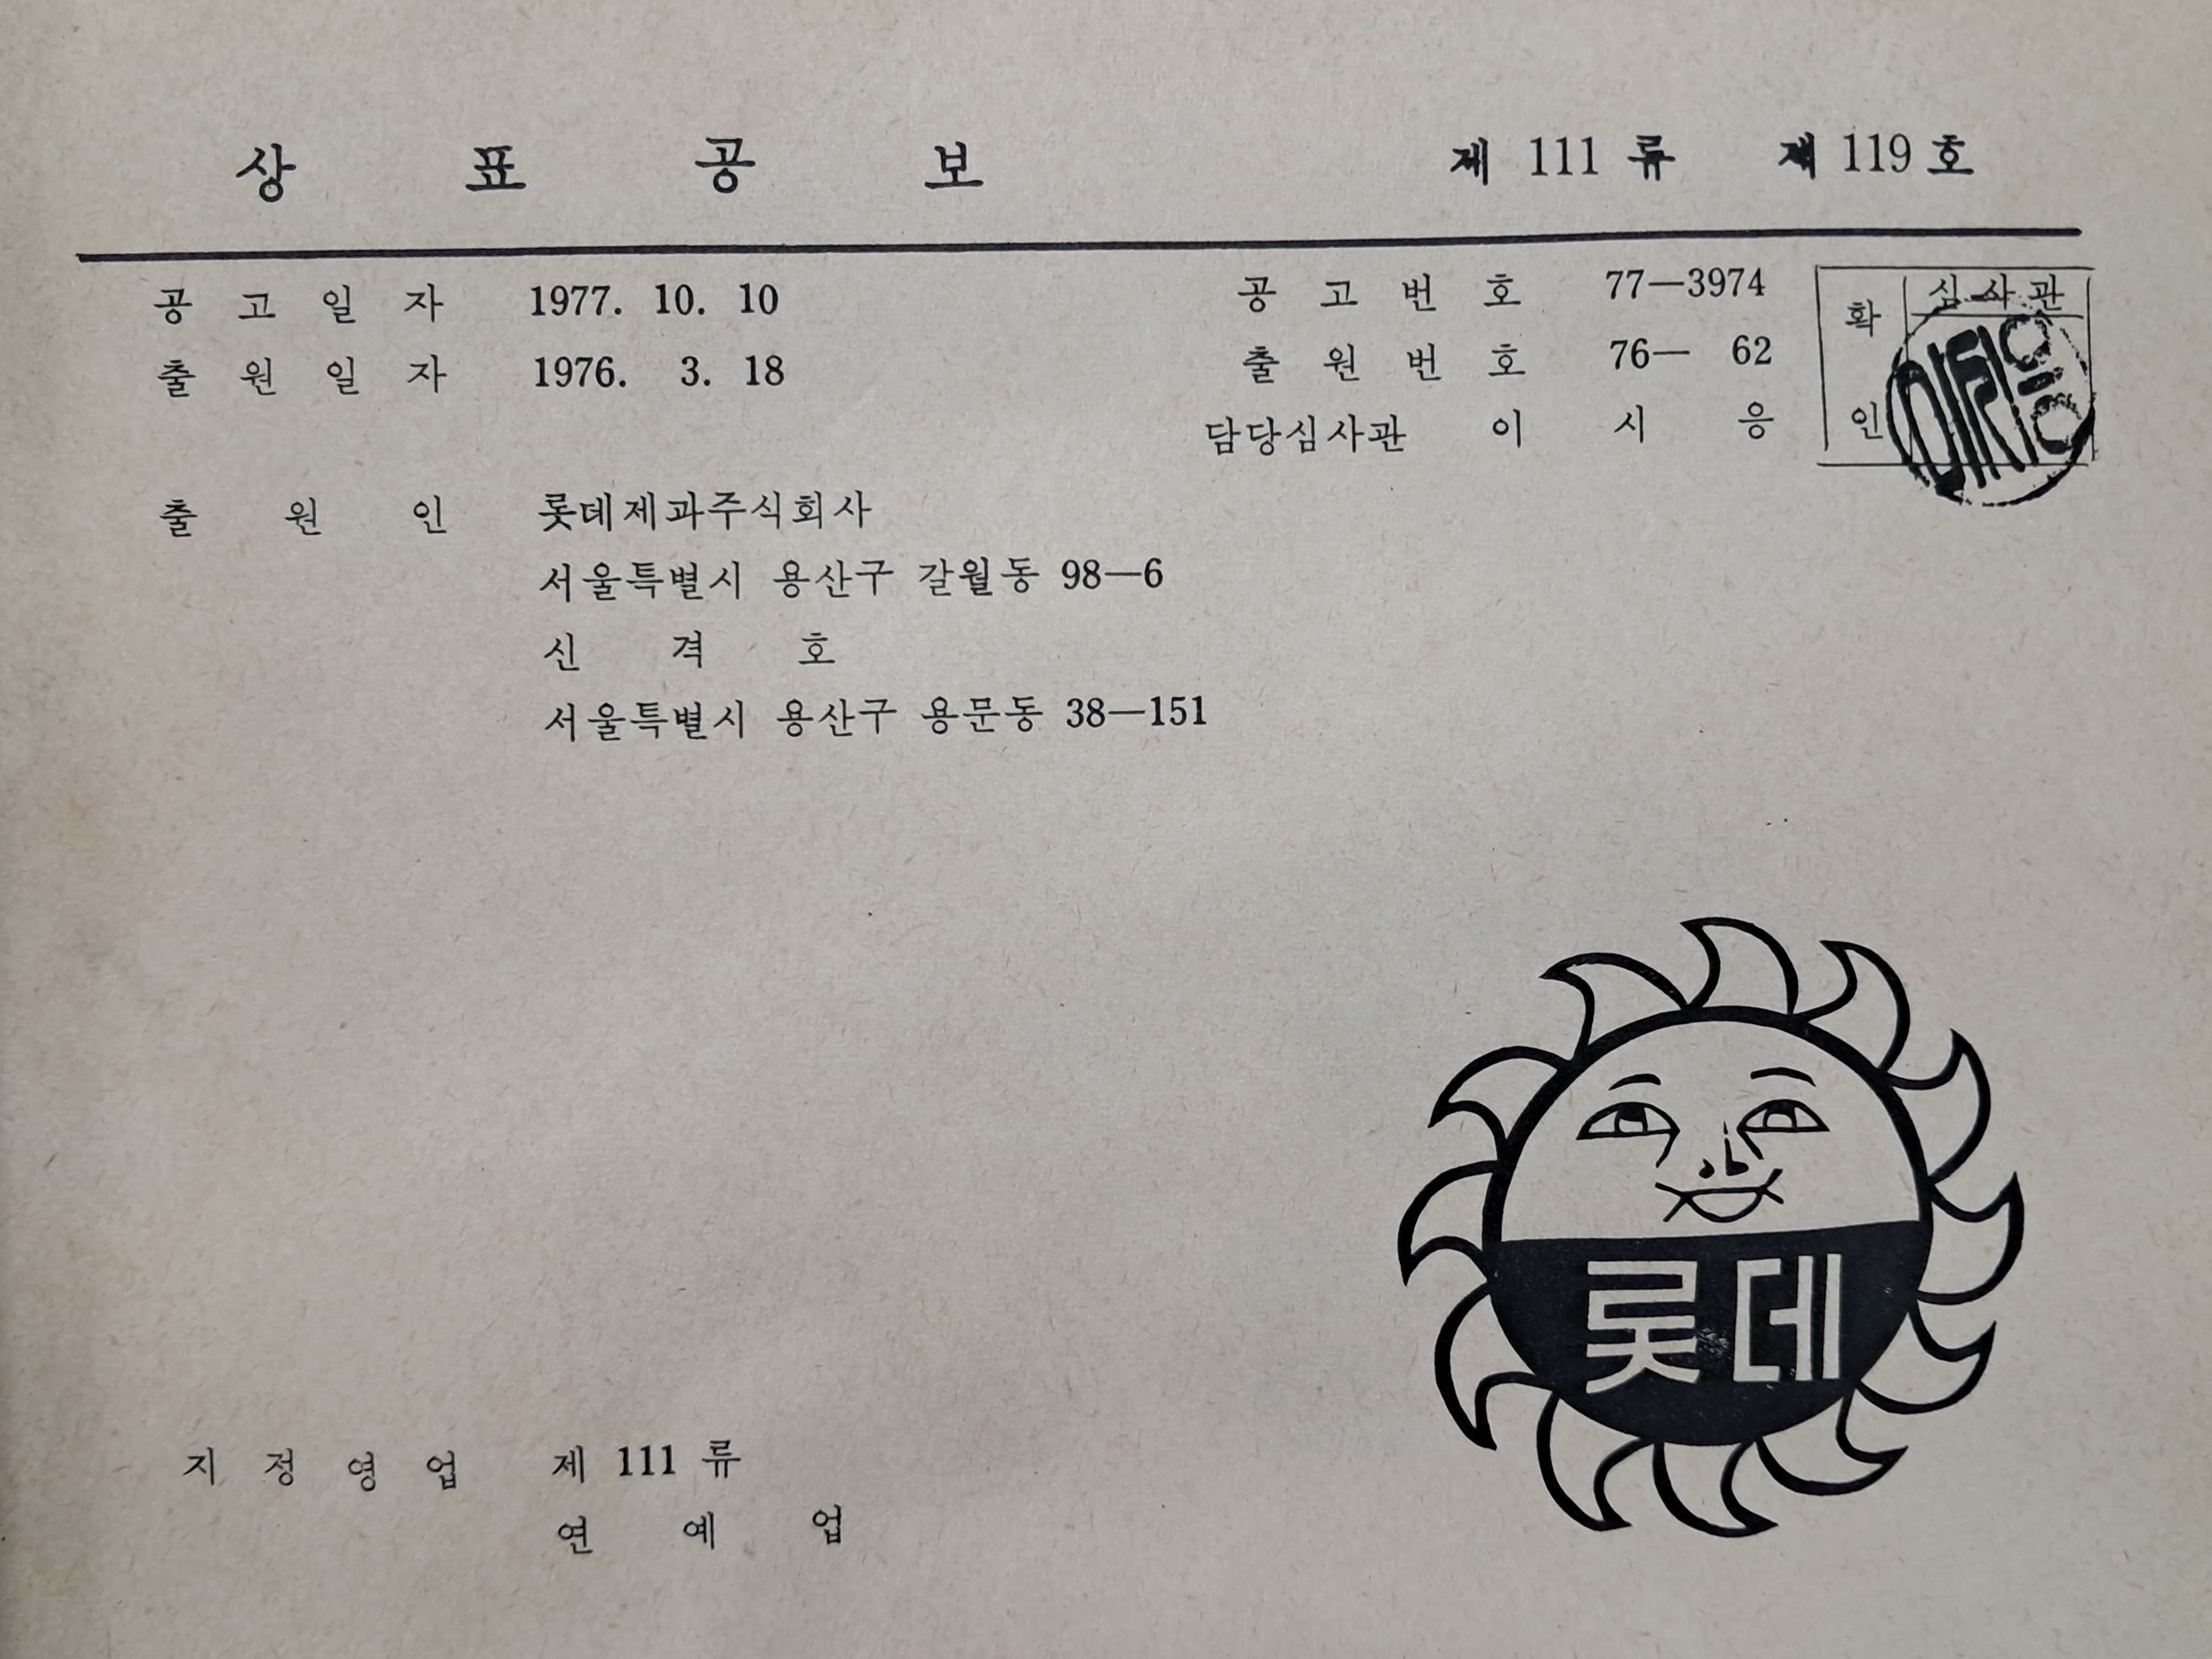 상 표 공 보 제 111 류 제 119 호
공 고 일 자 1977. 10. 10 공 고 번 호 77—3974
출 원 일 자 1976. 3. 18 출 원 번 호 76— 62
담당심사관 이 시 응
확 인 심사관
이시응
출 원 인 롯데제과주식회사
서울특별시 용산구 갈월동 98—6
신 격 호
서울특별시 용산구 용문동 38—151
롯데
지 정 영 업 제 111 류
연 예 업